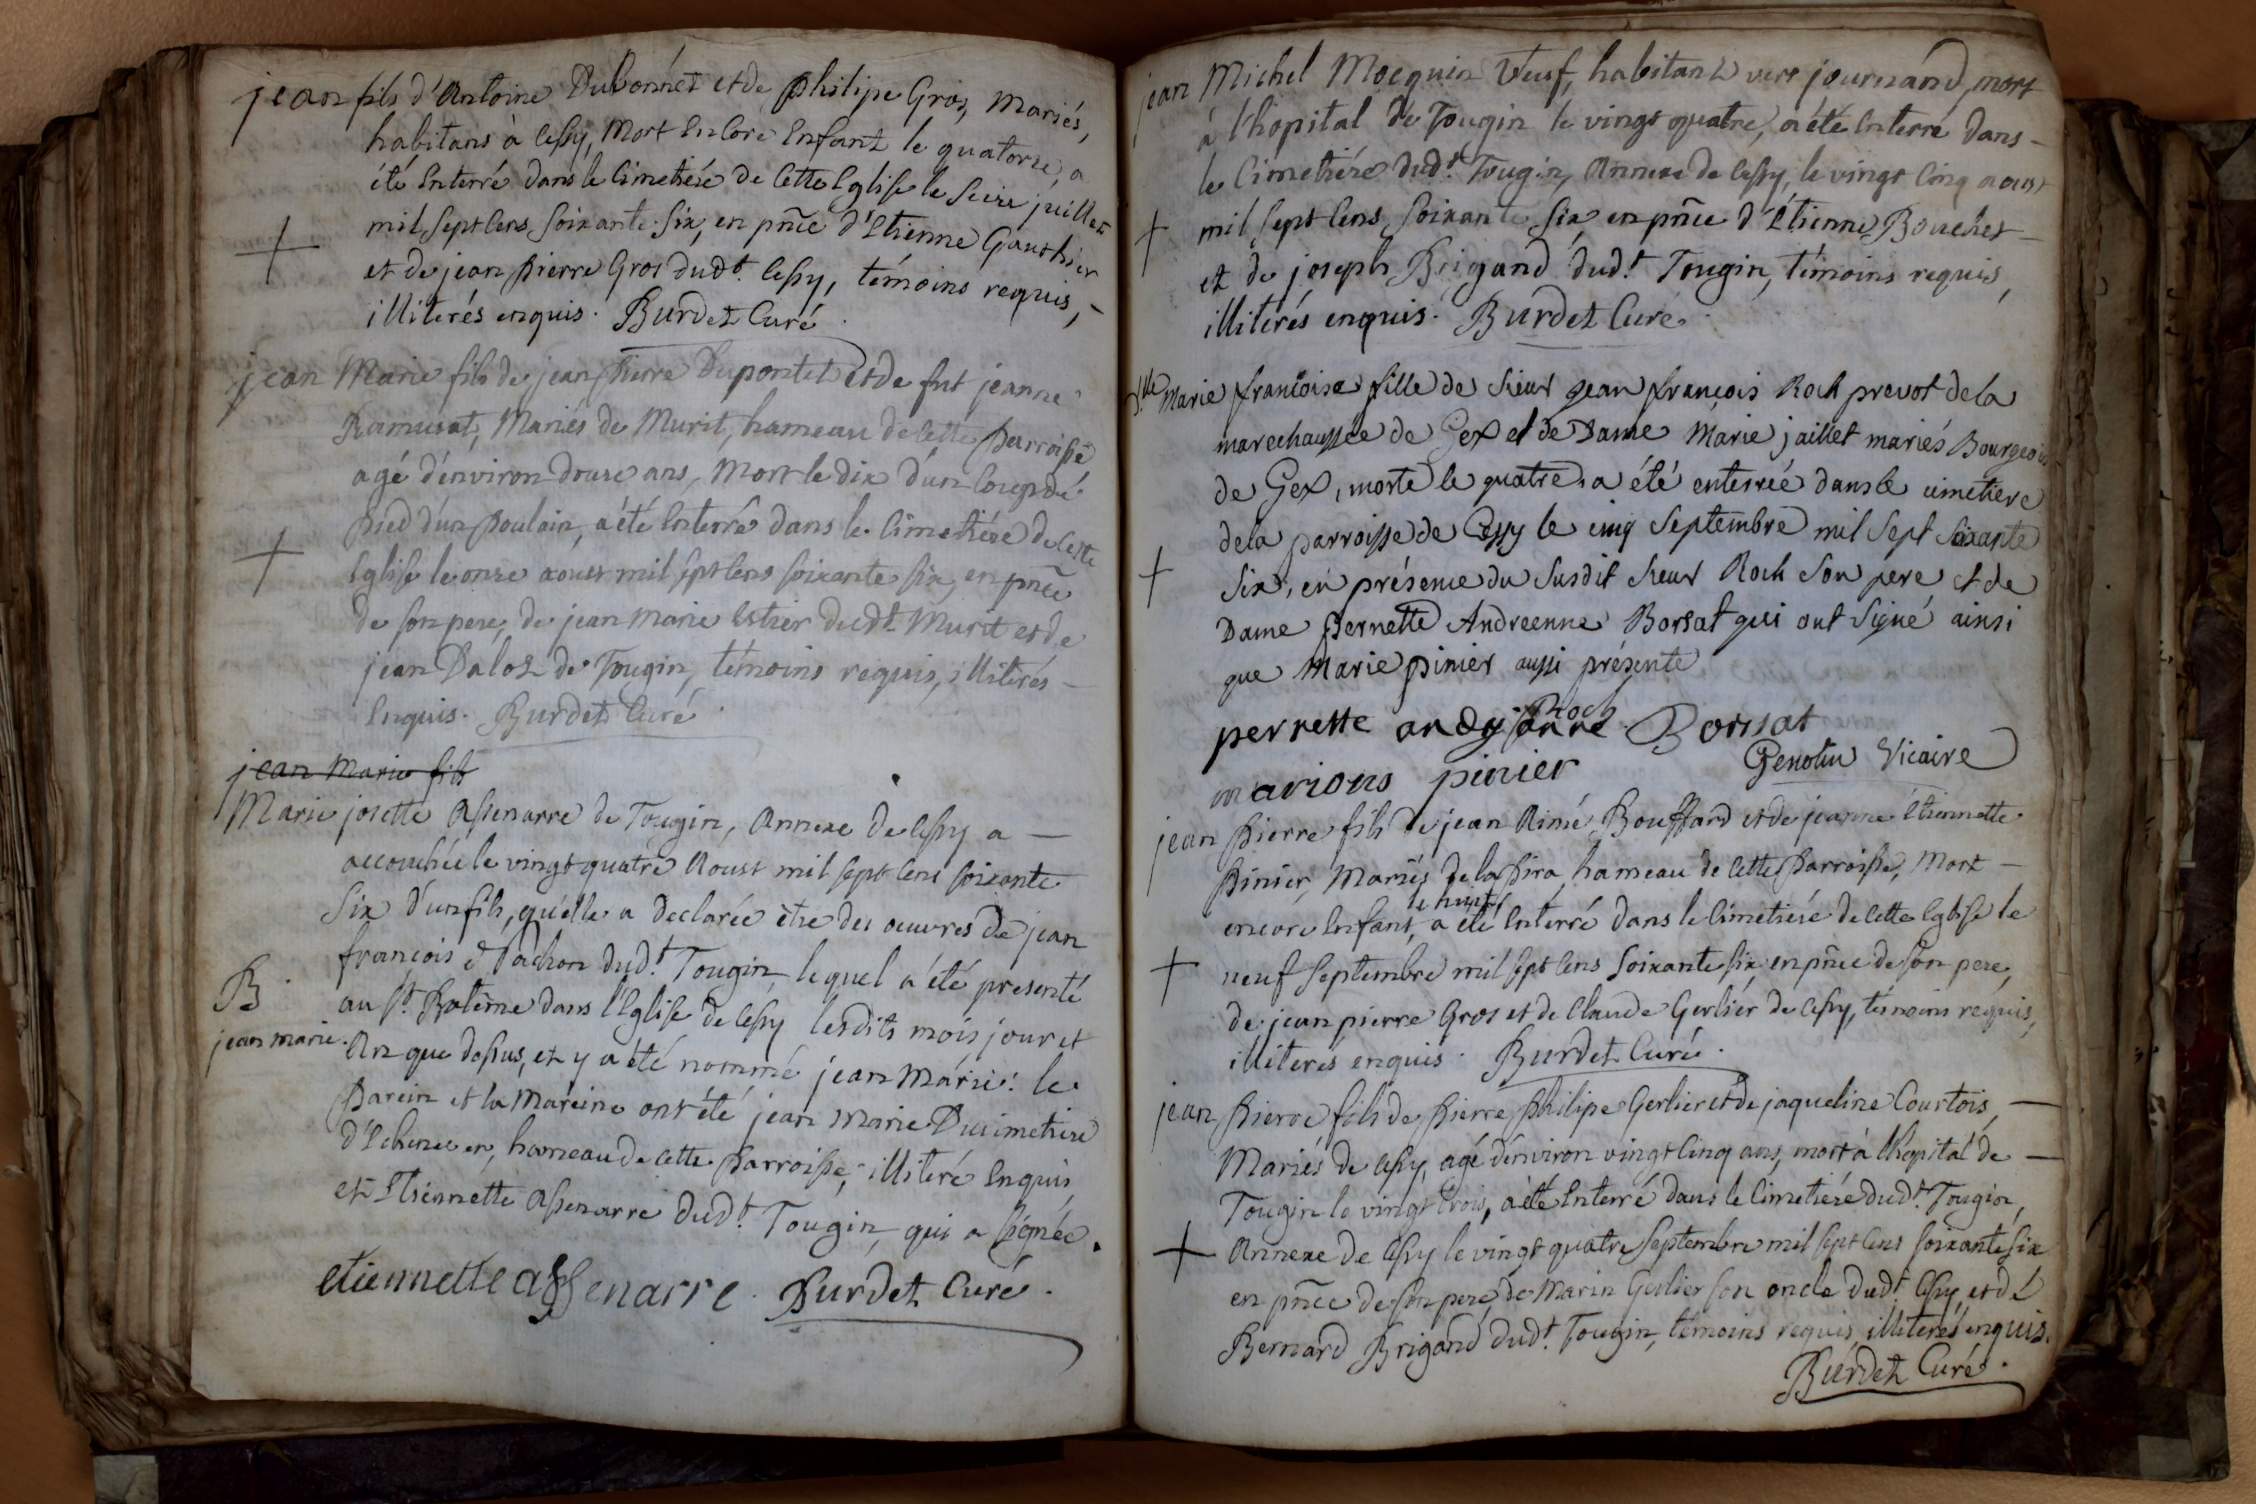 jean fils d'Antoine Dubonnet et de Philipe Gros, Mariés,
habitans à Cessy, Mort Encore Enfant le quatorze, a
été Enterré dans le Cimetiére de Cette Eglise le Seize juillet
mil sept Cens soixante-six, en pñce d'Etienne Gauthier
et de jean pierre Gros dudt. Cessy, témoins requis,
illiterés enquis. Burdet Curé.
jean Marie fils de jean pierre Dupontet et de fut jeanne
Ramusat, Mariés de Murit, hameau de Cette Parroisse
agé d'environ douze ans, Mort le dix d'un Coup de
pied d'un Poulain, a été Enterré dans le Cimetiére de Cette
Eglise le onze aoust mil sept Cens soixante six, en pñce
de son pere, de jean Marie Estier dudt. Murit et de
jean Daloz de Tougin, témoins requis, illiterés
Enquis. Burdet Curé.
jean Marie fils
Marie josette Assenarre de Tougin, Annexe de Cessy a
accouchée le vingt quatre Aoust mil sept Cens soixante
Six d'un fils, qu'elle a declarée être des oeuvres de jean
françois dudt. Tougin, lequel a été presenté
au St. Batême dans l'Eglise de Cessy lesdits mois jour et
B
jean marie.
An que dessus, et y a été nommé jean Marie: le
Parein et la Mareine ont été jean Marie Ducimetiere
d'Echenevex, hameau de Cette Parroisse, illiteré Enquis,
et Etiennette Assenarre dudt. Tougin, qui a signée.
etiennette assenarre. Burdet Curé.
jean Michel Mocquin Veuf, habitant vers journand, mort
à l'hopital de Tougin le vingt quatre, a été Enterré dans
le Cimetiére dudt. Tougin, Annexe de Cessy, le vingt Cinq aoust
mil sept Cens soixante six, en pñce d'Etienne Bouchet
et de joseph Brigand dudt. Tougin, témoins requis,
illiterés enquis. Burdet Curé.
Dlle Marie françoise fille de sieur jean françois Roch prevot de la
marechaussée de Gex et de Dame Marie jaillet mariés Bourgeois
de Gex, morte le quatre, a été enterrée dans le cimetiere
de la parroisse de Cessy le cinq septembre mil sept soixante
six, en présence du susdit sieur Roch son pere, et de
Dame Pernette Andreenne Borsat qui ont signé ainsi
que Marie pinier aussi présente
Roch
pernette andryanne Borssat
marions pinier Genolin Vicaire
jean Pierre fils de jean Aimé Bouffard et de jeanne Etiennette
Pinier, Mariés de la Pira, hameau de Cette Parroisse, Mort
le huit
encore Enfant, a été Enterré dans le Cimetiére de Cette Eglise le
neuf septembre mil sept Cens soixante six, en pñce de son pere,
de jean pierre Gros et de Claude Gerlier de Cessy, témoins requis,
illiterés enquis. Burdet Curé.
jean Pierre fils de Pierre Philipe Gerlier et de jaqueline Courtois,
Mariés de Cessy, agé d'environ vingt Cinq ans, mort à l'hôpital de
Tougin le vingt trois, a été Enterré dans le Cimetiére dudt. Tougin,
Annexe de Cessy le vingt quatre septembre mil sept Cens soixante six
en pñce de son pere, de Marin Gerlier son oncle dudt. Cessy, et de
Bernard Brigand dudt. Tougin, témoins requis, illiterés enquis.
Burdet Curé.